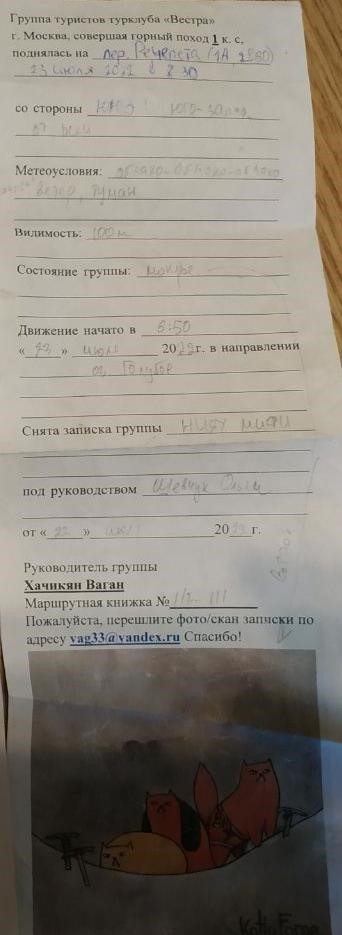 Группа туристов турклуба «Вестра»
г. Москва, совершая горный поход 1 к. с,
поднялась на пер.
23 июля 2022 в 8 30
со стороны юго-запад
Метеоусловия:
ветер, туман
Видимость: 100 м
Состояние группы: мокрые
Движение начато в 8:50
« 23 » июля 2022г. в направлении
оз. Голубое
Снята записка группы НИЯУ МИФИ
под руководством Шевчук Ольги
от « 22 » 20 г.
Руководитель группы
Хачикян Ваган
Маршрутная книжка №
Пожалуйста, перешлите фото/скан записки по
адресу vag33@yandex.ru Спасибо!